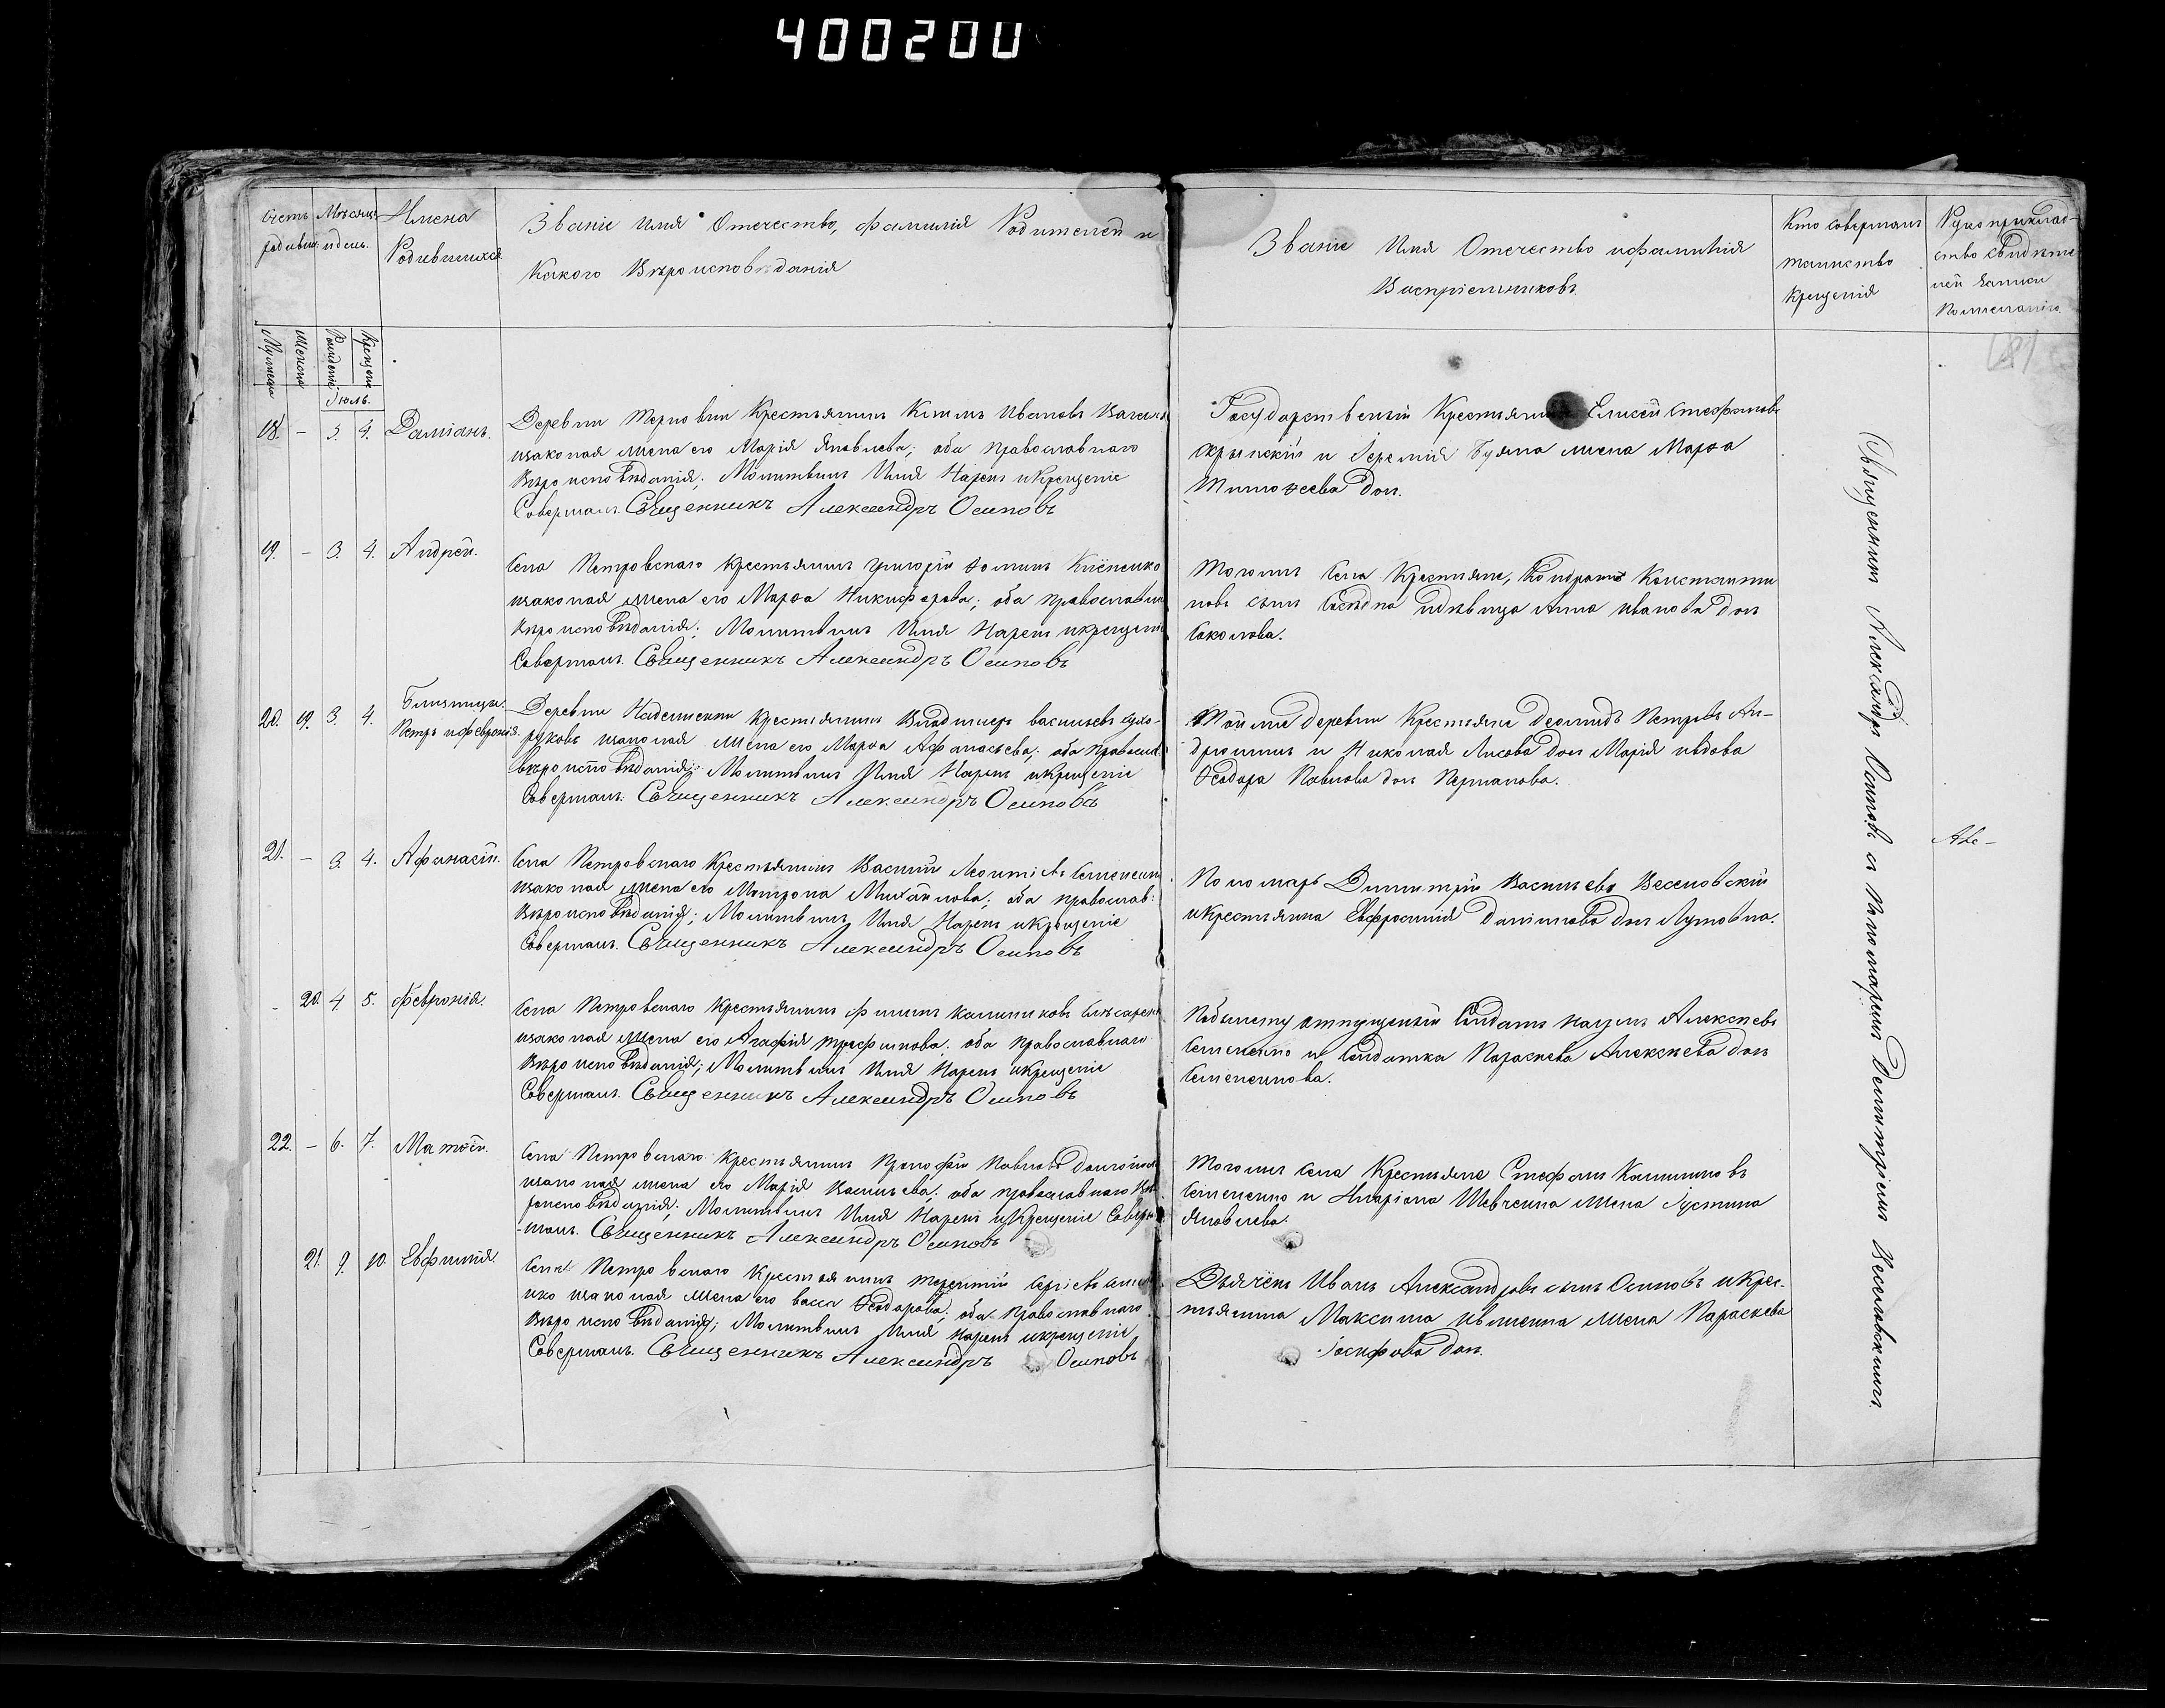 400200
Счетъ
родивш:
Мѣсяцъ
и день.
Имена
Родившихся
Званіе Имя Отечество, фамилія Родителей и
Какого Вѣроисповѣданія
Званіе Имя Отечество и фамилія
Воспріемниковъ.
Кто совершалъ
таинство
крещенія
Рукоприклад-
ство свидѣте
лей записи
по желанію
Мужеска
Женска
Рожденіе
Крещеніе
Іюль.
18. – 3. 4. Даміанъ.
Деревни Терновки Крестьянинъ Климъ Ивановъ
изаконая жена его Марія Яковлева; оба православнаго
Вѣроисповѣданія; Молитвилъ Имя Нарекъ и Крещеніе
Совершалъ. Священникъ Александръ Осиповъ
Государственый Крестьянинъ Елисей Стефановъ
и Іереміи Буяна жена Марѳа
Тимоѳеева доч.
19. – 3. 4. Андрей.
Села Петровскаго крестьянинъ Григорій Ѳоминъ
изаконая жена его Марѳа Никифорова; оба православна
Вѣроисповѣданія; Молитвилъ Имя Нарекъ и крещеніе
Совершалъ. Священникъ Александръ Осиповъ
Тогожъ Села Крестьяне, Кондратъ Константи
новъ сынъ и дѣвица Анна Иванова доч
Соколова.
20. 19. 3. 4. Близнецы.
Петръ и Февронія.
Деревни Надежевки крестьянинъ Владимеръ Васильевъ Сухо-
руковъ изаконая жена его Марѳа Афанасьева; оба православ:
вѣроисповѣданія; Молитвилъ Имя Нарекъ и Крещеніе
Совершалъ. Священникъ Александръ Осиповъ
Той же деревни Крестьяне Деомидъ Петровъ Ан-
дрюшинъ и Николая Лисова доч Марія и вдова
Ѳеодора Павлова доч
21. – 3. 4. Афанасій.
Села Петровскаго Крестьянинъ Василій Леонтіевъ Семененко
изаконая жена его Матрона Михайлова; оба православ:
Вѣроисповѣданія; Молитвилъ Имя Нарекъ и Крещеніе
Совершалъ. Священникъ Александръ Осиповъ
Пономарь Димитрій Васильевъ Веселовскій
и Крестьянка Евфросинія Данилова доч
Аве-
- 20. 4. 5. Февронія.
Села Петровскаго Крестьянинъ Филипъ Калиниковъ
изаконая жена его Агафія Трофимова; оба православнаго
Вѣроисповѣданія; Молитвилъ Имя Нарекъ и Крещеніе
Совершалъ. Священникъ Александръ Осиповъ
отпущеный Солдатъ Наумъ Алексѣевъ
Семененко и Солдатка Параскева Алексѣева доч
Семененкова.
22. – 6. 7. Матѳей.
Села Петровскаго крестьянинъ Прокофій Павловъ
изаконая жена его Марія Васильева; оба православнаго Вѣ
роисповѣданія; Молитвилъ Имя Нарекъ и Крещеніе Совер
шалъ. Священникъ Александръ Осиповъ
Тогожъ села Крестьяне Стефанъ Калиниковъ
Семененко и Иларіона Шевченка жена Іустина
Яковлева.
21. 9. 10. Евфимія.
Села Петровскаго Крестьянинъ Терентій Сергіевъ Семен
ко изаконая жена его Васса Ѳеодорова; оба православнаго
Вѣроисповѣданія; Молитвилъ Имя Нарекъ и крещеніе
Совершалъ. Священникъ Александръ Осиповъ
Дьячёкъ Иванъ Александровъ сынъ Осиповъ и Крес-
тьянина Максима жена Параскева
Іосифова доч.
Священникъ Александръ Осиповъ съ Пономаремъ Демитріемъ Веселовскимъ.